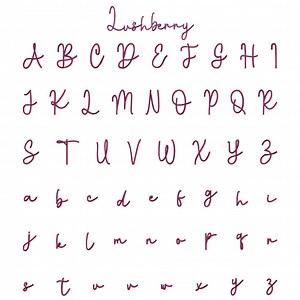 Lushberry
A B C D E F G H I
J K L M N O P Q R
S T U V W X Y Z
a b c d e f g h i
j k l m n o p q r
s t u v w x y z